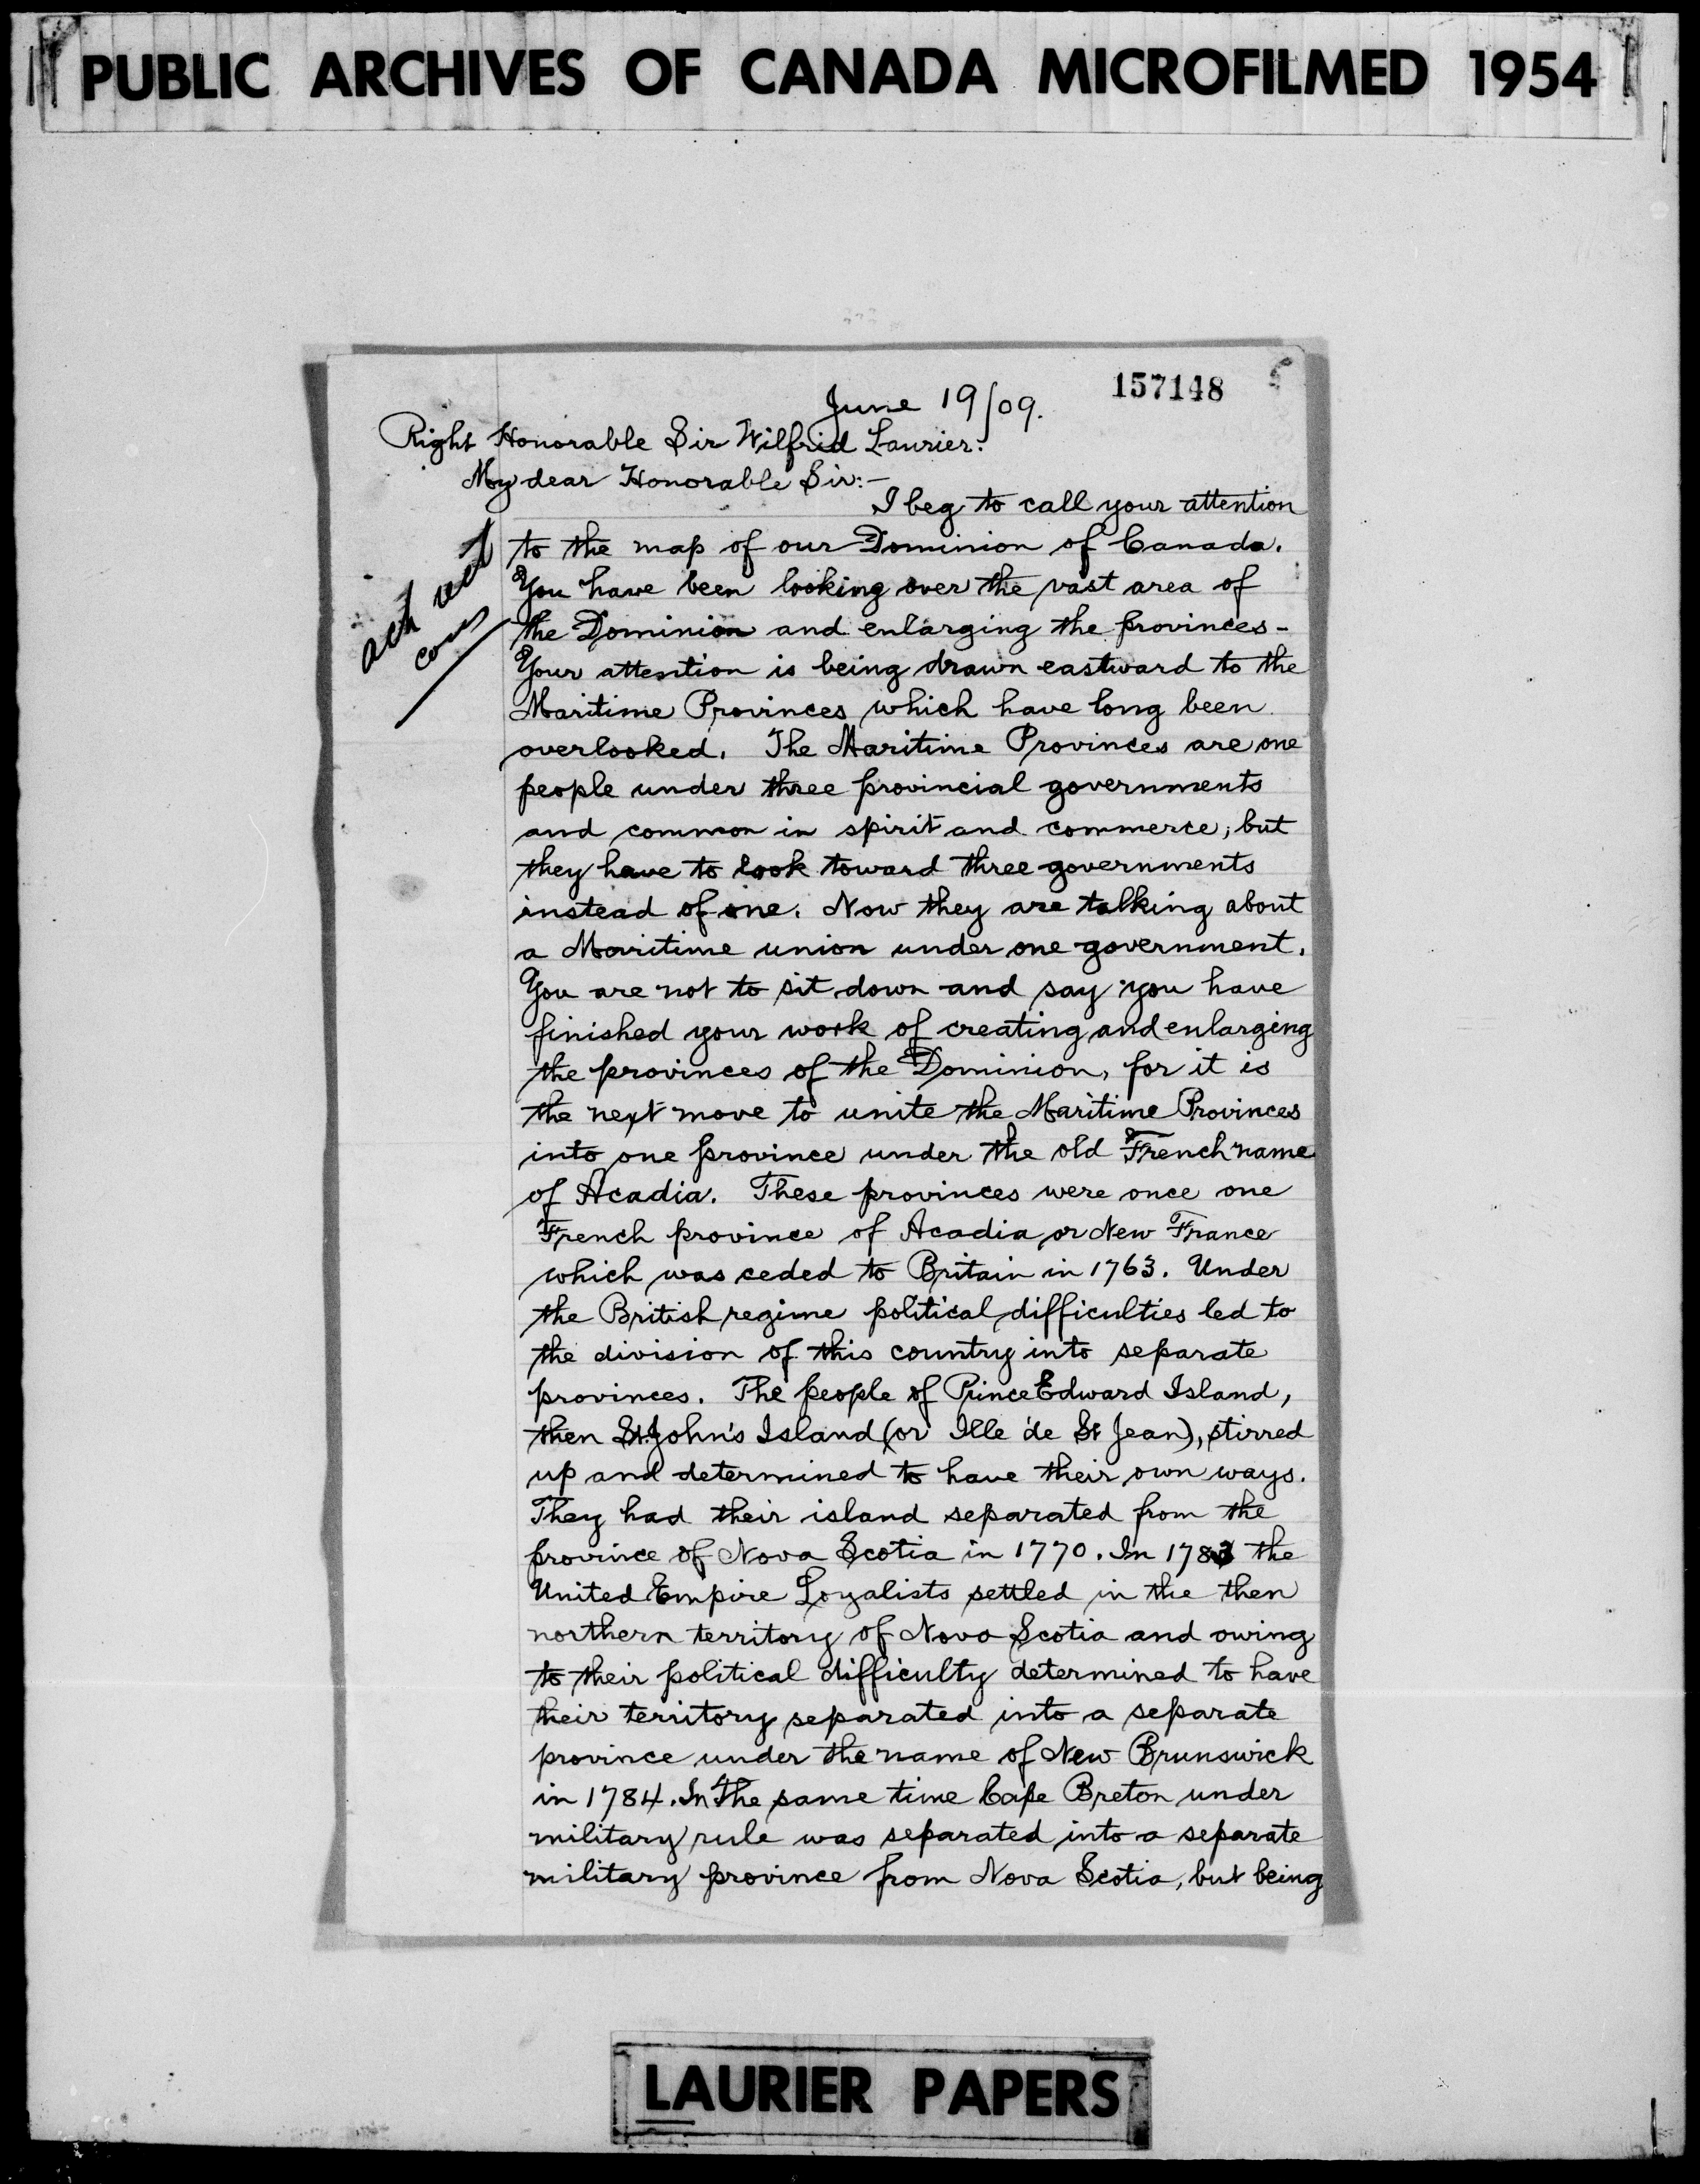 PUBLIC ARCHIVES OF CANADA MICROFILMED 1954
157148
June 19/09.
Right Honorable Sir Wilfrid Laurier:
My dear Honorable Sir:-
I beg to call your attention
to the map of our Dominion of Canada.
You have been looking over the vast area of
the Dominion and enlarging the provinces-
Your attention is being drawn eastward to the
Maritime Provinces which have long been
overlooked. The Maritime Provinces are one
people under three provincial governments
and common in spirit and commerce; but
they have to look toward three governments
instead of one. Now they are talking about
a Maritime union under one government.
You are not to sit down and say you have
finished your work of creating and enlarging
the provinces of the Dominion, for it is
the next move to unite the Maritime Provinces
into one province under the old French name
of Acadia. These provinces were once one
French province of Acadia or New France
which was ceded to Britain in 1763. Under
the British regime political difficulties led to
the division of this country into separate
provinces. The people of Prince Edward Island,
then St. John's Island (or Ille de St Jean), stirred
up and determined to have their own ways.
They had their island separated from the
province of Nova Scotia in 1770. In 1783 the
United Empire Loyalists settled in the then
northern territory of Nova Scotia and owing
to their political difficulty determined to have
their territory separated into a separate
province under the name of New Brunswick
in 1784. In the same time Cape Breton under
military rule was separated into a separate
military province from Nova Scotia, but being
LAURIER PAPERS